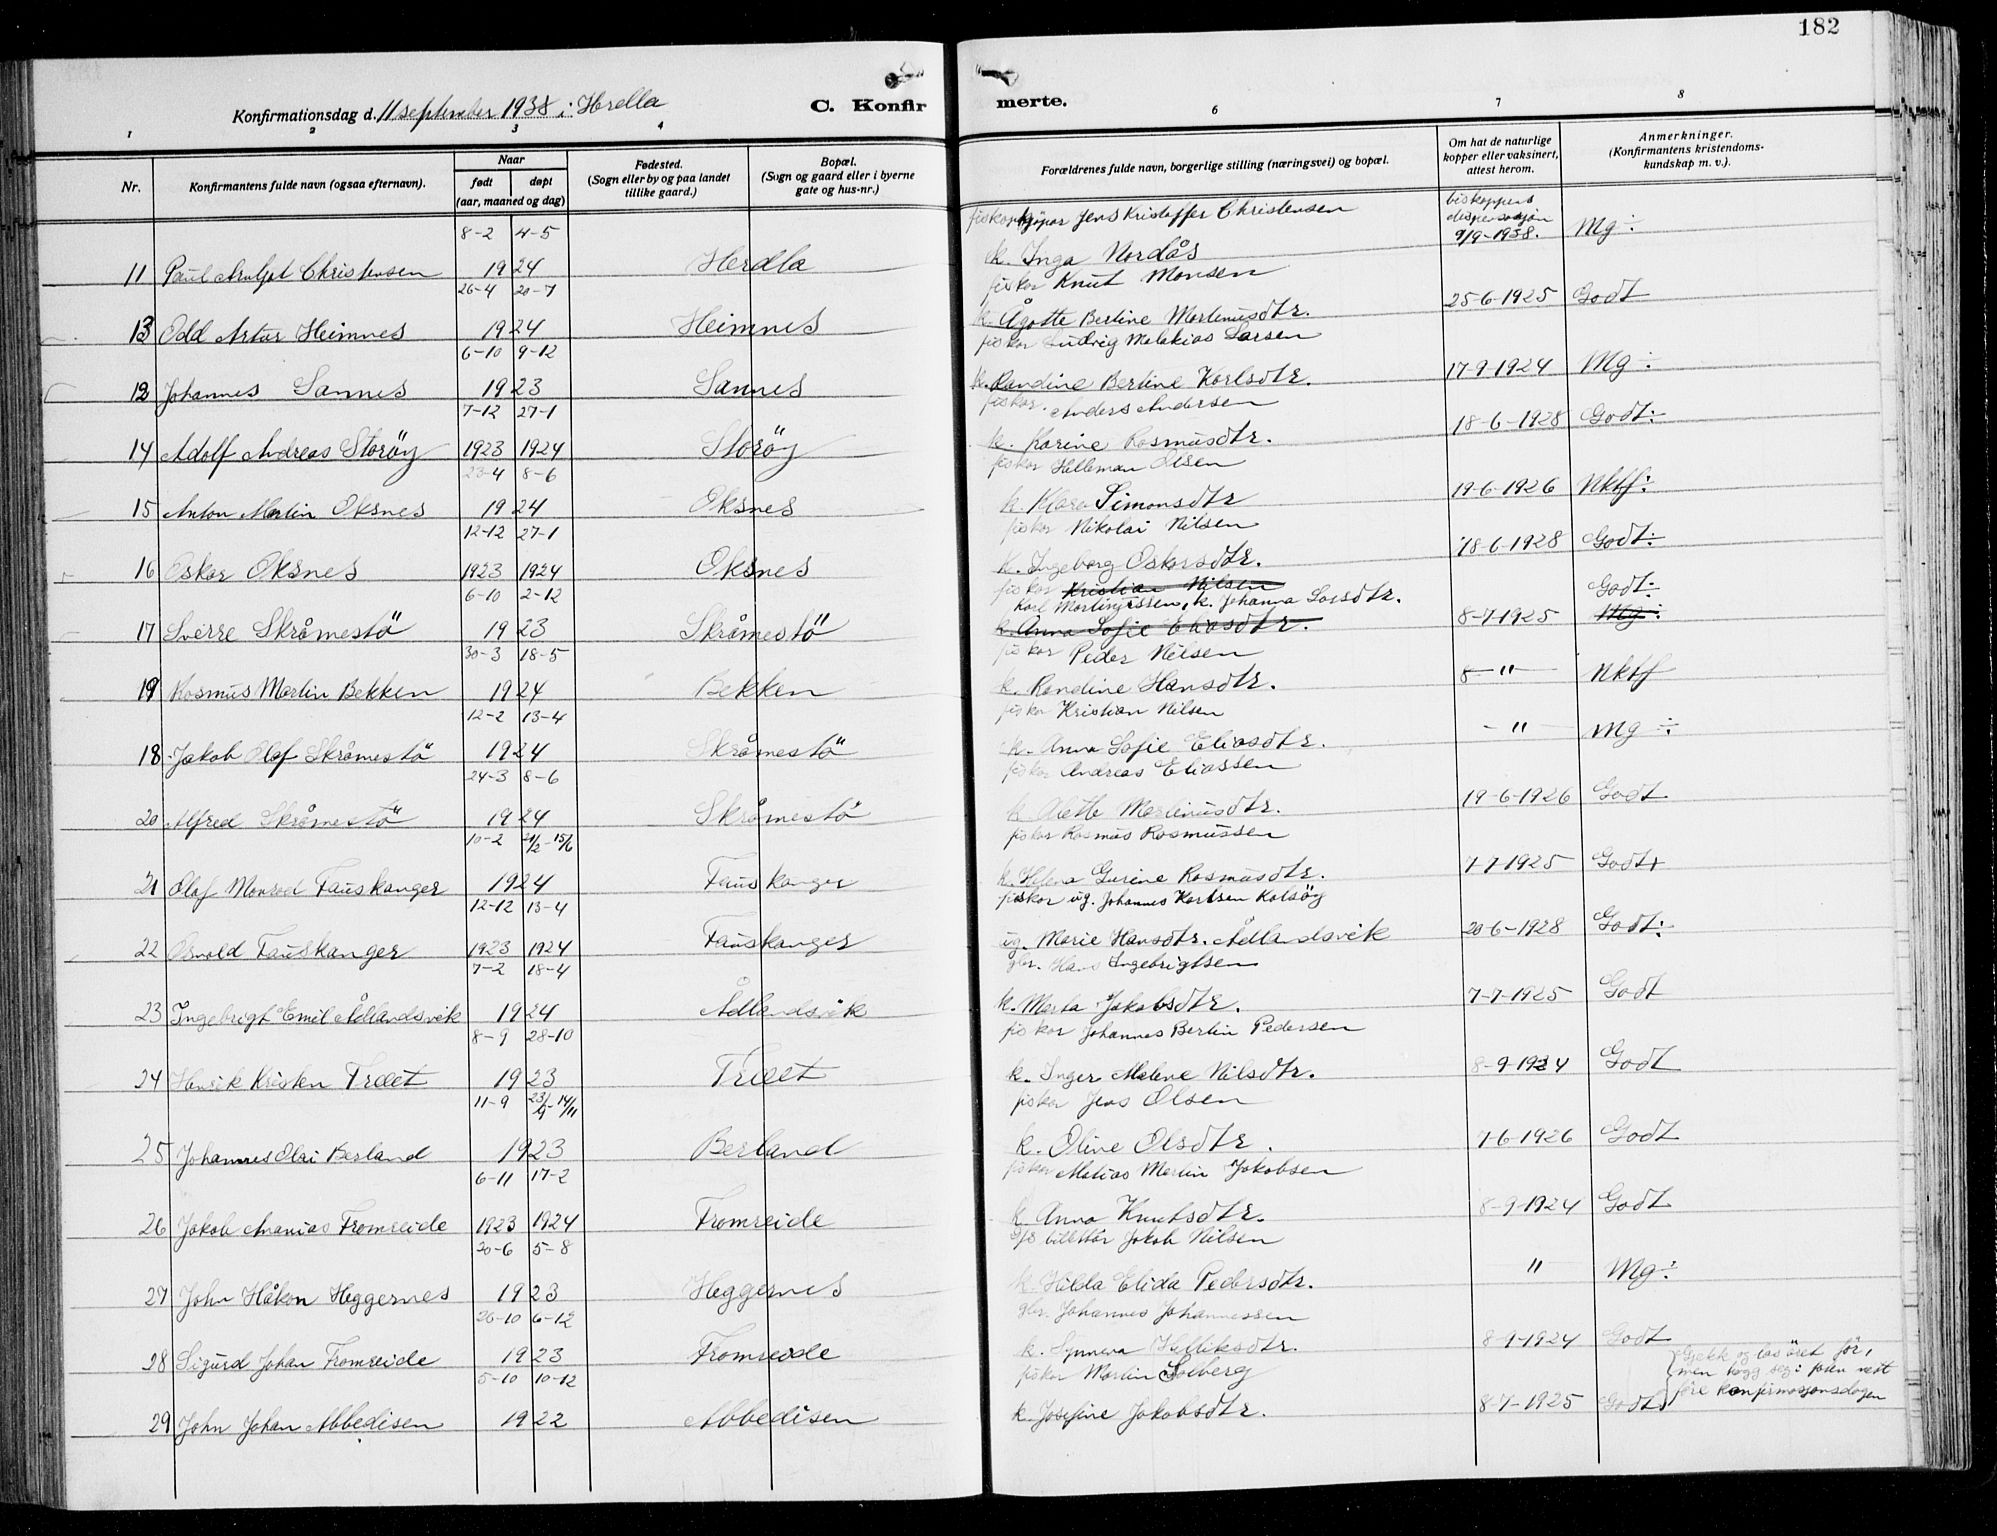 182
Konfirmationsdag d. 11 september 1938 i Herdla
C. Konfir merte.
1 2 3 4 6 7 8
Nr.
Konfirmantens fulde navn (ogsaa efternavn).
Naar
født døpt
(aar, maaned og dag)
Fødested.
(Sogn eller by og paa landet
tillike gaard.)
Bopæl.
(Sogn og gaard eller i byerne
gate og hus-nr.)
Forældrenes fulde navn, borgerlige stilling (næringsvei) og bopæl.
Om hat de naturlige
kopper eller vaksinert,
attest herom.
Anmerkninger.
(Konfirmantens kristendoms-
kundskap m. v.).
8-2 4-5 Jens Kristoffer Christensen biskoppens
9/9-1938. Mg ÷
11 Paul Arnljot Christensen 1924 Herdla k. Inga Nordås
26-4 20-7 fiskar Knut Monsen 25-6-1925 Godt
13 Odd Artur Heimnes 1924 Heimnes k. Ågotte Bertine Martinusdtr.
6-10 9-12 fiskar Ludvig Malakias Larsen 17-9-1924 Mg ÷
12 Johannes Sannes 1923 Sannes k. Randine Bertine Karlsdtr.
7-12 27-1 fiskar Anders Andersen 18-6-1928 Godt ÷
14 Adolf Andreas Storöy 1923 1924 Storöy k. Karine Rasmusdtr.
23-4 8-6 fiskar Helleman Olsen 19-6-1926 Nktf ÷
15 Anton Martin Oksnes 1924 Oksnes k. Klara Simonsdtr
12-12 27-1 fiskar Nikolai Nilsen 18-6-1928 Godt ÷
16 Oskar Oksnes 1923 1924 Oksnes k. Ingeborg Oskarsdtr.
6-10 2-12 fiskar Kristian Nilsen Godt ÷
Karl Martinussen, k. Johanna Larsdtr. 8-7-1925 Mg ÷
17 Sverre Skråmestö 1923 Skråmestö k. Anna Sofie Eliasdtr.
30-3 18-5 fiskar Peder Nilsen 8- " - Nktf
19 Rasmus Martin Bekken 1924 Bekken k. Randine Hansdtr.
12-2 13-4 fiskar Kristian Nilsen - " - Mg ÷
18 Jakob Olaf Skråmestö 1924 Skråmestö k. Anna Sofie Eliasdtr.
24-3 8-6 fiskar Andreas Eliassen 19-6-1926 Godt
20 Alfred Skråmestö 1924 Skråmestö k. Martinusdtr.
10-2 21/2-15/6 fiskar Rasmus Rasmussen 7-7-1925 Godt+
21 Olaf Monrad Fauskanger 1924 Fauskanger k. Helena Gurine Rasmusdtr.
12-12 13-4 fiskar ug. Johannes Karlsen Kalsöy 20-6-1928 Godt ÷
22 Osvald Fauskanger 1923 1924 Fauskanger ug. Marie Hansdtr. Ådlandsvik
7-2 18-4 gbr. Hans Ingebrigtsen 7-7-1925 Godt
23 Ingebrigt Emil Ådlandsvik 1924 Ådlandsvik k. Marta Jakobsdtr.
8-9 28-10 fiskar Johannes Bertin Pedersen 8-9-1924 Godt
24 Henrik Kristen Træet 1923 Træet k. Inger Malene Nilsdtr.
11-9 23/9-14/11 fiskar Jens Olsen 7-6-1926 Godt
25 Johannes Olai Berland 1923 Berland k. Oline Olsdtr.
6-11 17-2 fiskar Matias Martin Jakobsen 8-9-1924 Godt
26 Jakob Ananias Fromreide 1923 1924 Fromreide k. Anna Knutsdtr.
20-6 5-8 billettör Jakob Nilsen " Mg ÷
27 John Håkon Heggernes 1923 Heggernes k. Hilda Elida Pedersdtr.
26-10 6-12 gbr. Johannes Johannessen Godt
28 Sigurd Johan Fromreide 1923 Fromreide k. Synneva
5-10 10-12 fiskar Martin Solberg 8-7-1925 Godt
Gjekk og las året för,
men hogg seg i foten rett
före konfirmasjonsdagen
29 John Johan Abbedisen 1922 Abbedisen k. Josefine Jakobsdtr.